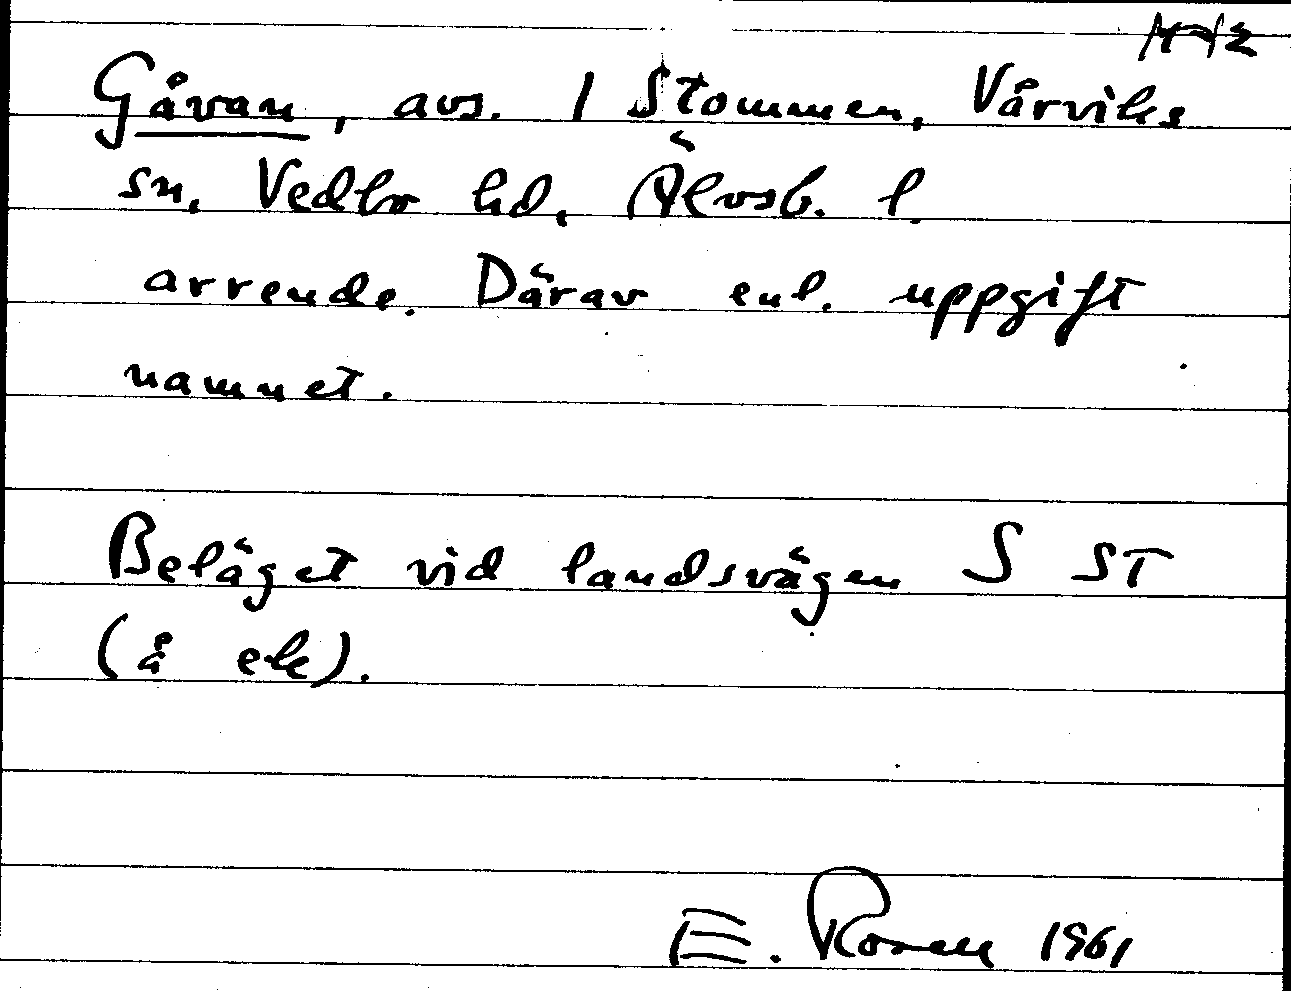 Gåvan, avs. 1 Stommen, Vårviks
sn, Vedbo hd, Älvsb. l.
arrende. Därav enl. uppgift
namnet.
Beläget vid landsvägen S ST
(å ek).
E. Rosell 1961